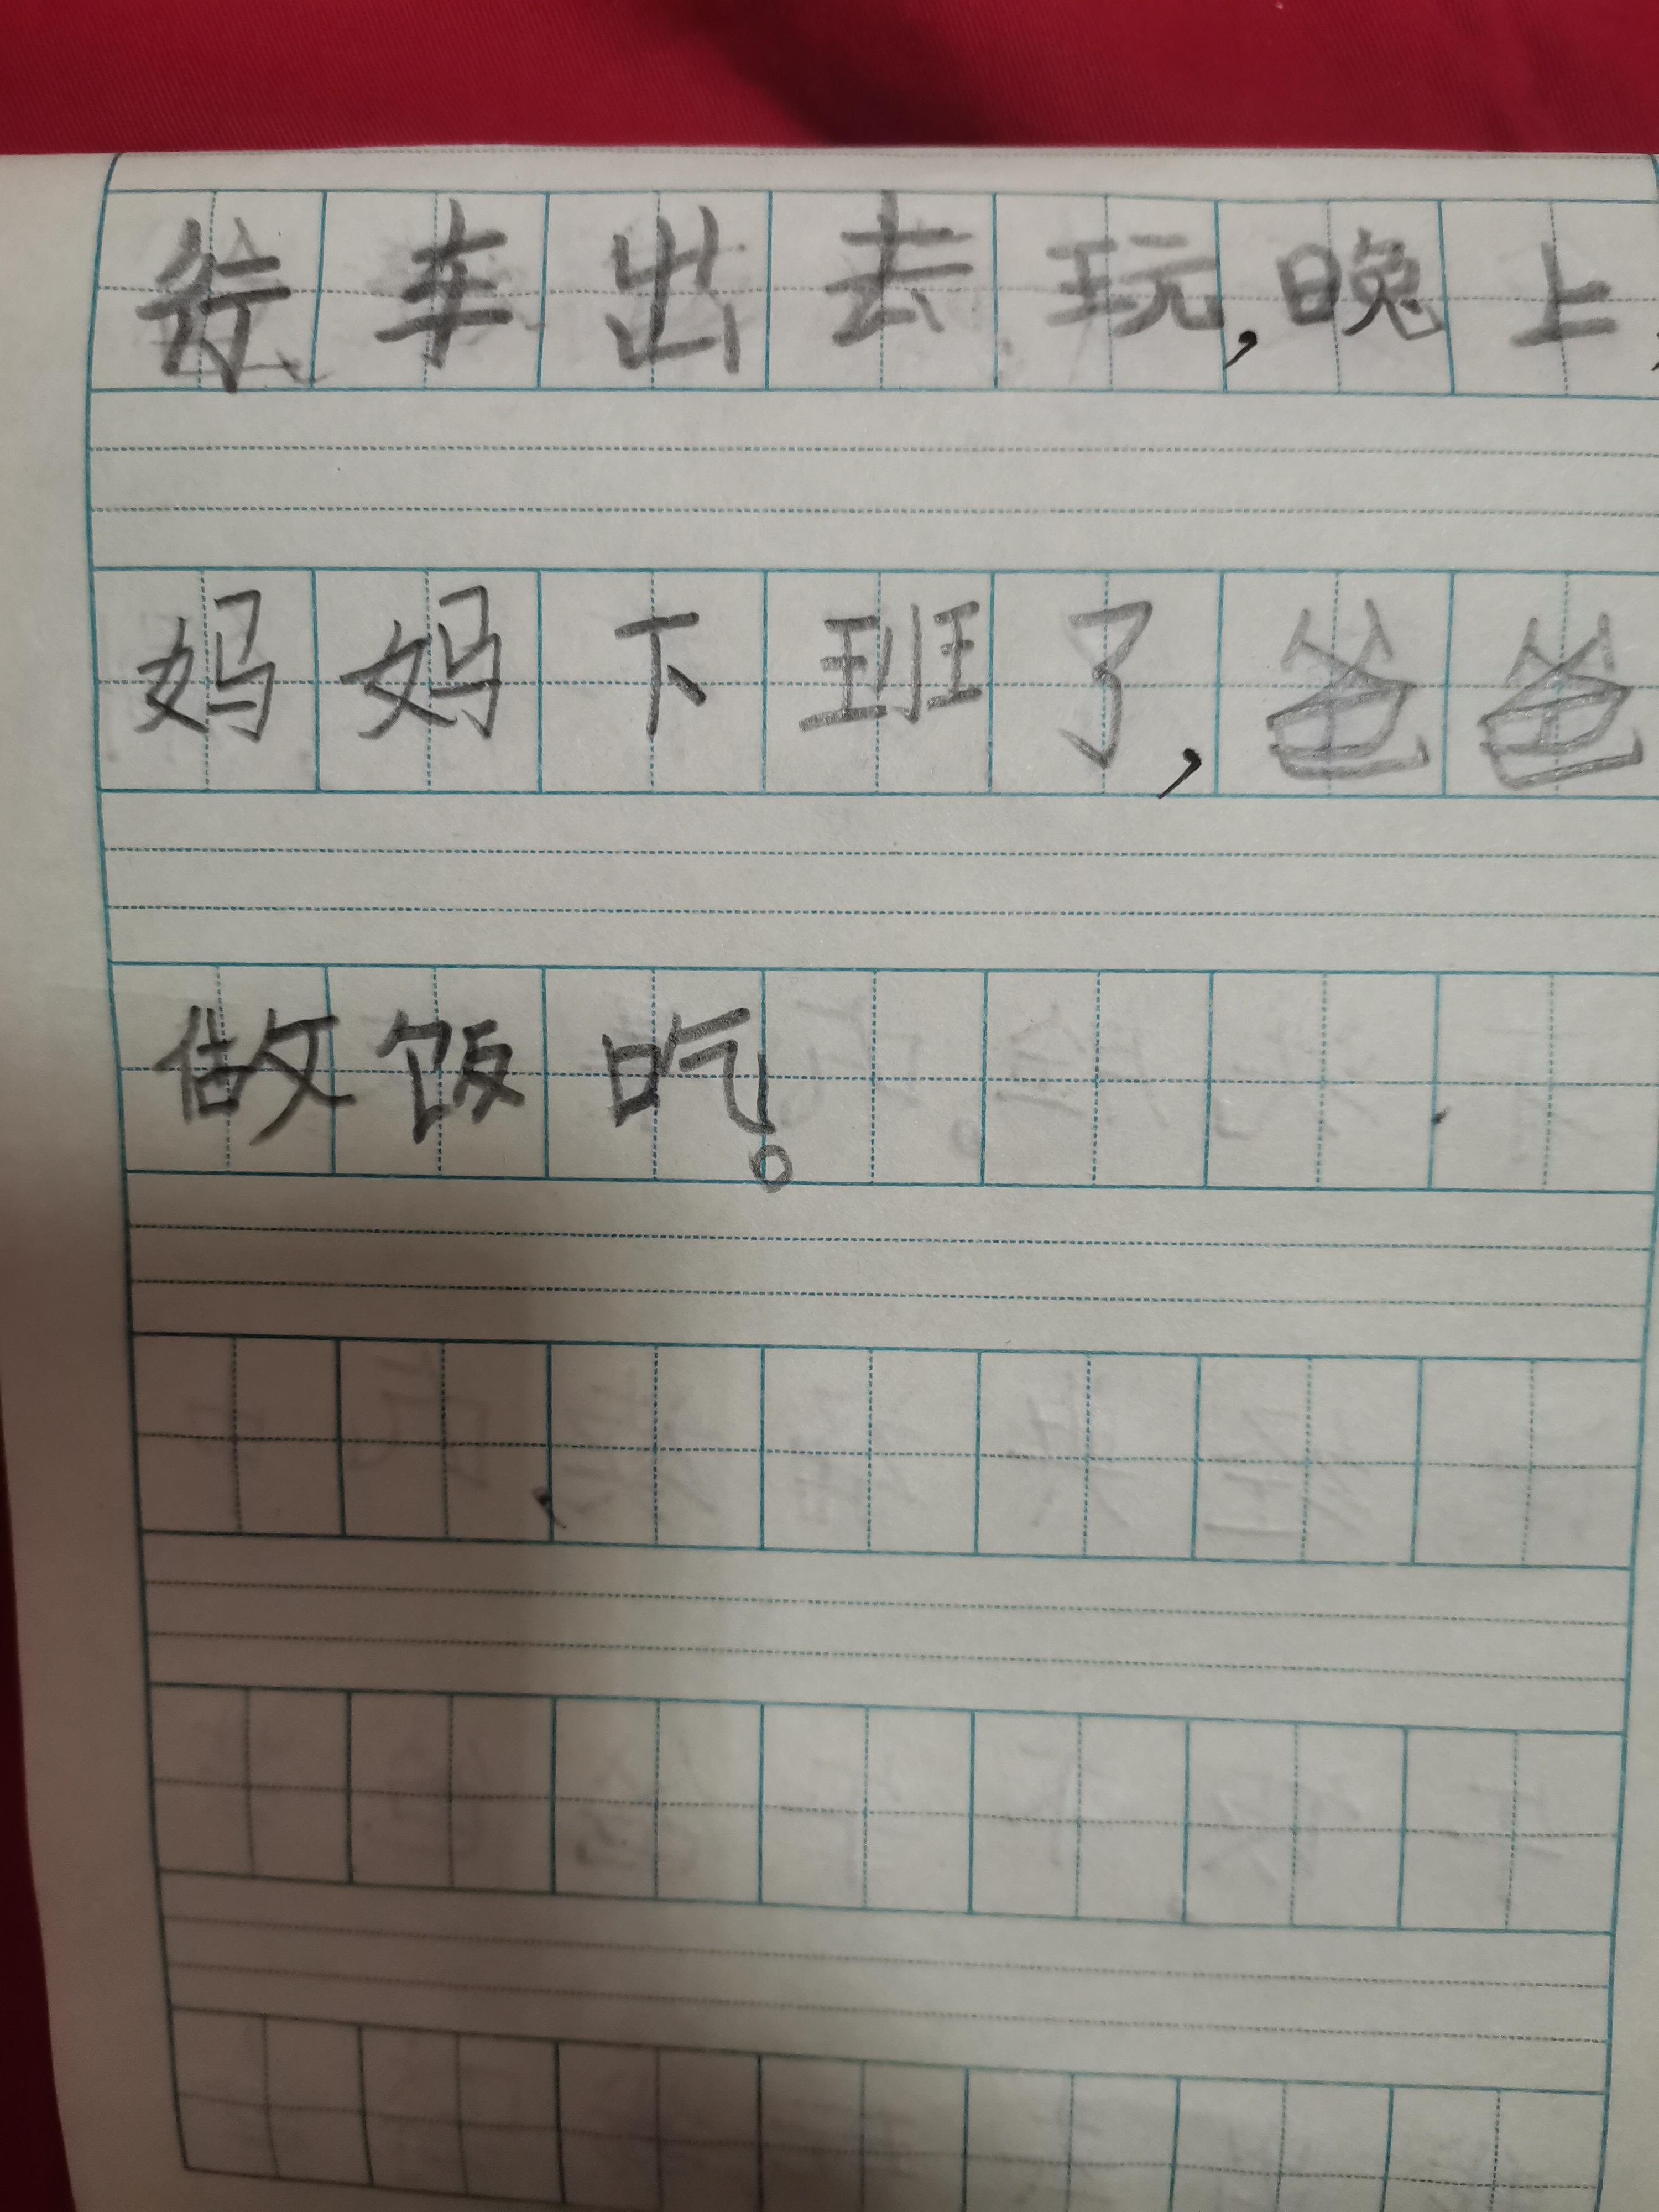 行车出去玩,晚上,
妈妈下班了,爸爸
做饭吃。